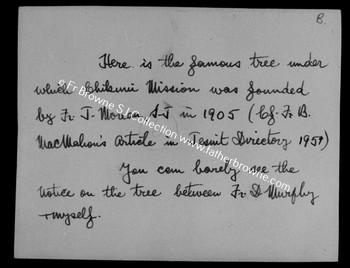 B.
Here is the famous tree under
which Chikuni Mission was founded
by Fr J. Moreau S.J in 1905 (Cf. Fr B.
MacMahon's article in Jesuit Directory 195?)
You can barely see the
notice on the tree between Fr D Murphy
+ myself.
© Fr Browne S.J. Collection www.fatherbrowne.com